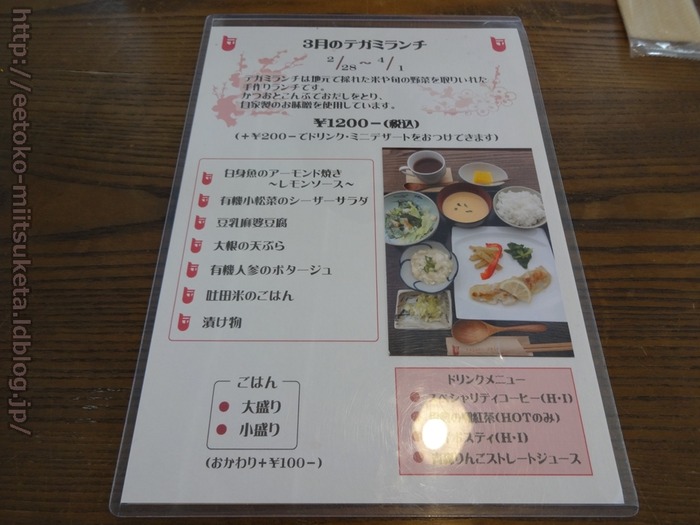 3月のテガミランチ
2/28～4/1
テガミランチは地元で採れた米や旬の野菜を取りいれた
手作りランチです。
かつおとこんぶでおだしをとり、
自家製のお味噌を使用しています。
¥1200-(税込)
(+¥200-でドリンク・ミニデザートをおつけできます)
白身魚のアーモンド焼き
～レモンソース～
有機小松菜のシーザーサラダ
豆乳麻婆豆腐
大根の天ぷら
有機人参のポタージュ
吐田米のごはん
漬け物
ごはん
大盛り
小盛り
(おかわり+¥100-)
ドリンクメニュー
スペシャリティコーヒー(H・I)
紅茶(HOTのみ)
スティ(H・I)
りんごストレートジュース
http://eetoko-miitsuketa.ldblog.jp/